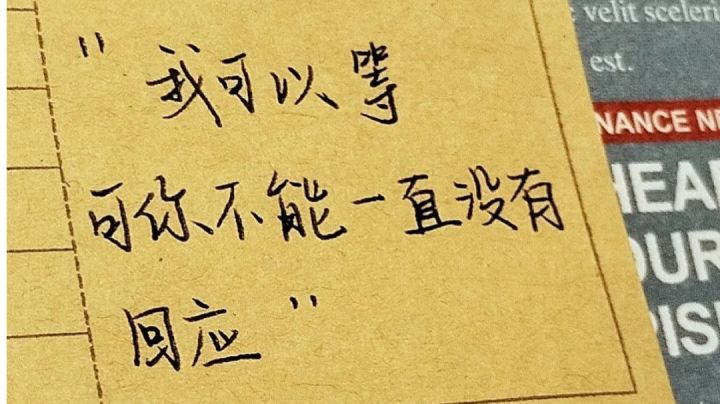 "我可以等
可你不能一直没有
回应"
velit sceleri
est.
NANCE NE
HEAL
OUR
PIS